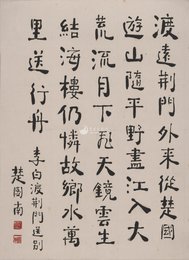 渡遠荆門外来從楚國
遊山隨平野盡江入大
荒流月下飞天鏡雲生
結海樓仍憐故鄉水萬
里送行舟 李白渡荆門送別
楚圖南